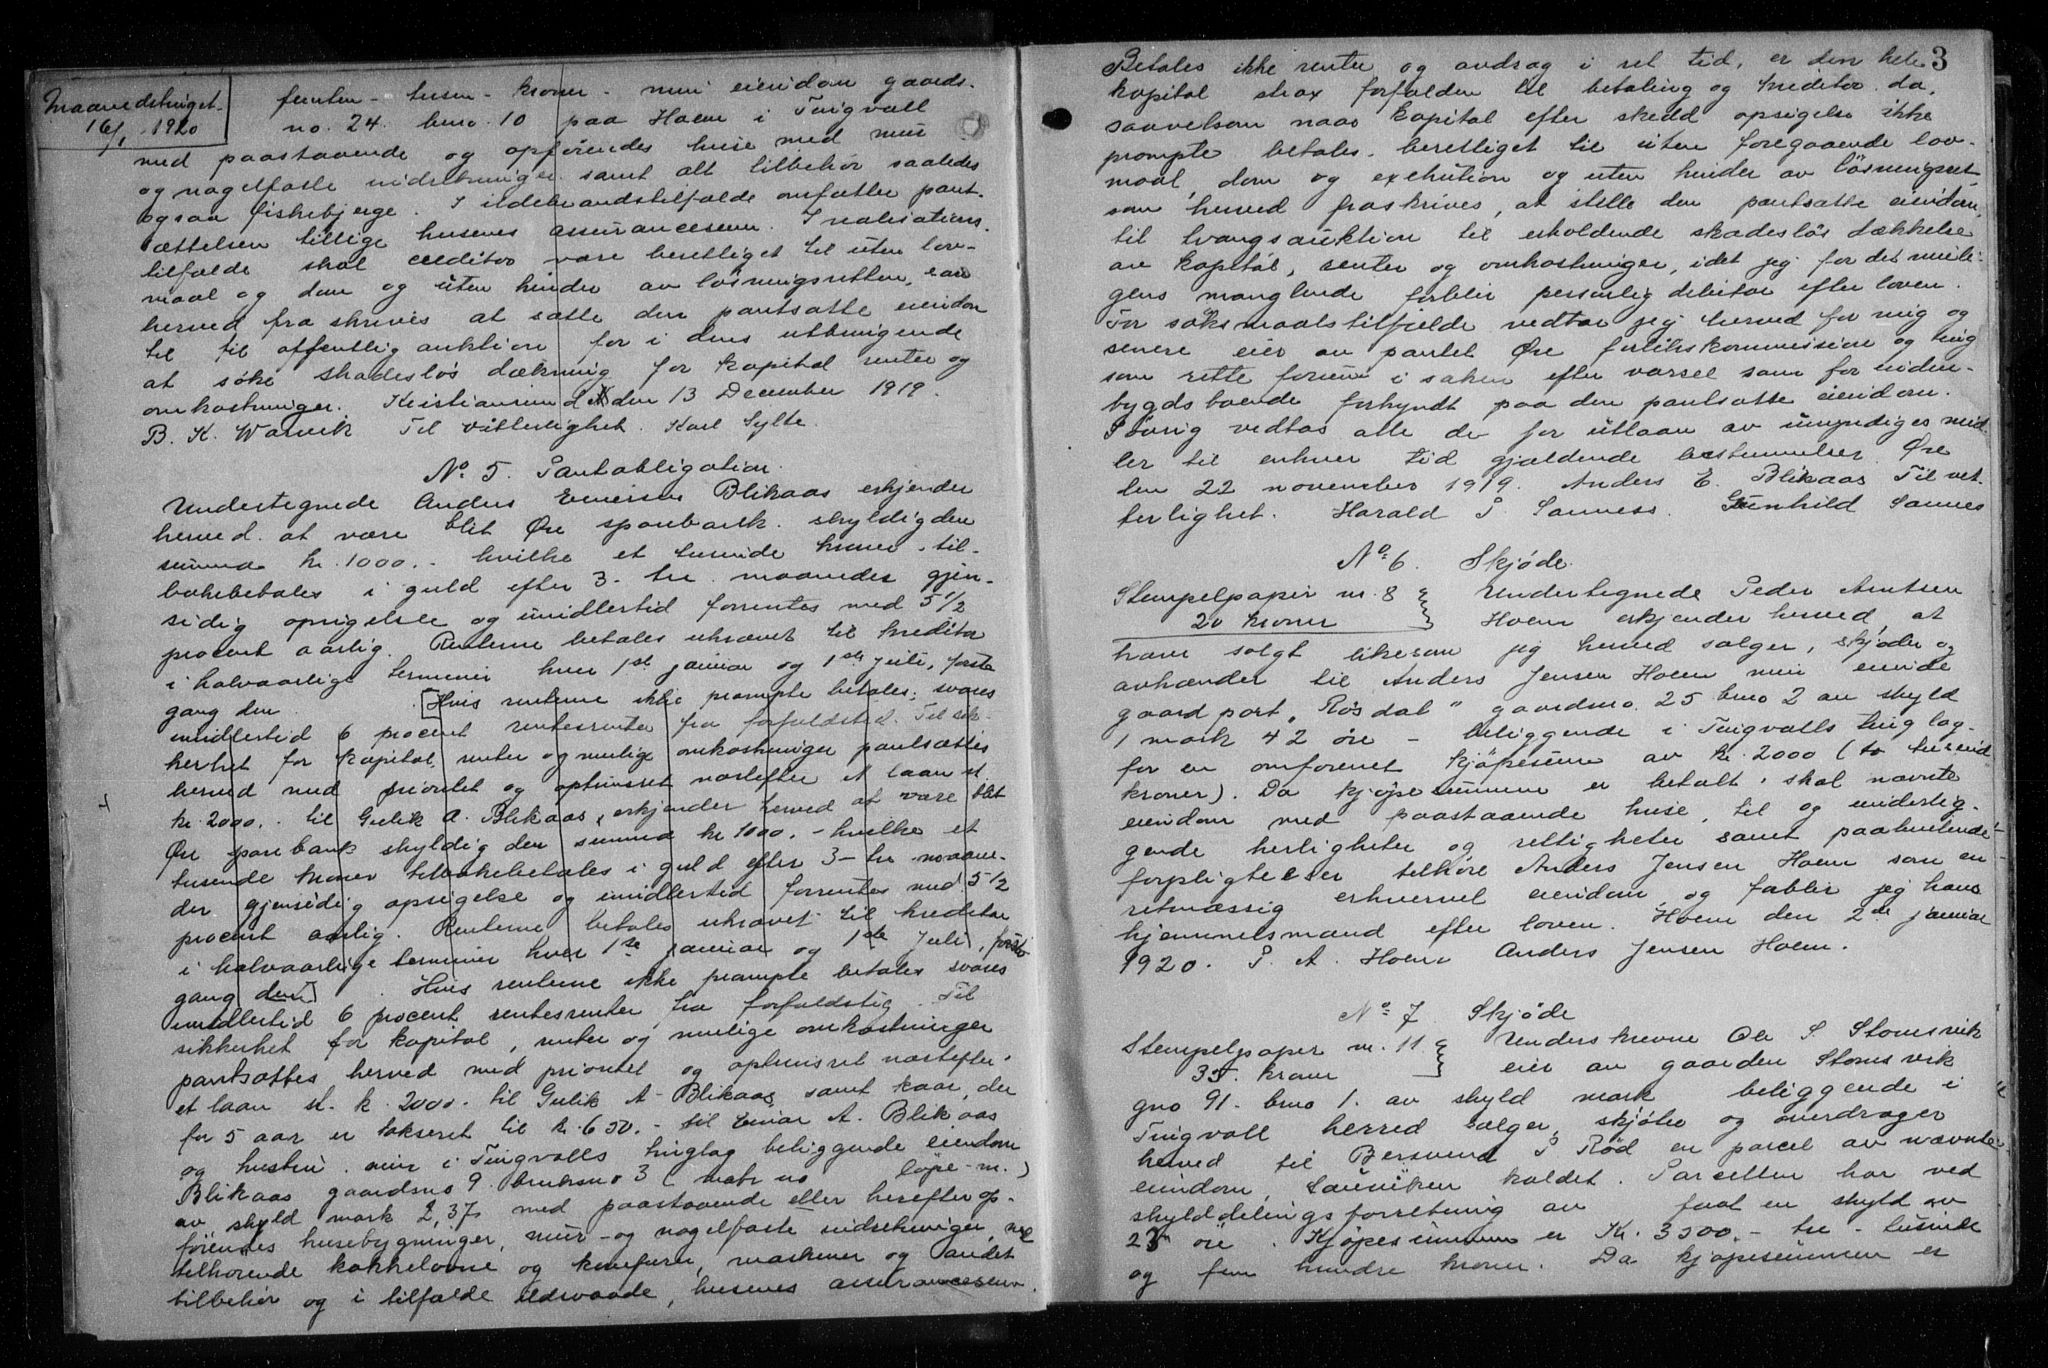 Maanedstinget
16/1 1920
femten - tusen - kroner - min eiendom gaards-
no. 24 bno. 10 paa Hoem i Tingvoll
med paastaaende og opførendes huse med mur
og nagelfaste indretninger samt alt tilbehør saaledes
ogsaa Fiskebjerge. I ildebrandstilfælde omfatter pant-
sættelsen tillige husenes assurancesum. I realisations-
tilfælde skal creditor være berettiget til uten lov-
maal og dom og uten hinder av løsningsretten, som
herved fraskrives at sætte den pantsatte eiendom
til til offentlig auktion for i dens utbringende
at søke skadesløs dækning for kapital renter og
omkostninger. Kristiansund N den 13 December 1919.
B. K. Warvik Til vitterlighet. Karl Sylte.
No. 5. Pantobligation.
Undertegnede Anders Blikaas erkjender
herved at være blit Øre sparebank skyldig den
summa kr. 1000.- hvilke et tusinde kroner til-
bakebetales i guld efter 3- tre maaneder gjen-
sidig opsigelse og imidlertid forrentes med 5 1/2
procent aarlig. Renterne betales ukrævet til kreditor
i halvaarlige terminer hver 1ste januar og 1ste juli, første
gang den . [Hvis renterne ikke prompte betales, svares
imidlertid 6 procent rentesrenter fra forfaldstid. Til sik-
kerhet for kapital, renter og mulige omkostninger pantsættes
herved med prioritet og optrinsret næstefter et laan st.
kr. 2000.- til Gulik A. Blikaas, erkjender herved at være blit
Øre sparebank skyldig den summa kr 1000.- hvilke et
tusende kroner tilbakebetales i guld efter 3- tre maane-
der gjensidig opsigelse og imidlertid forrentes med 5 1/2
procent aarlig. Renterne betales ukrævet til kreditor
i halvaarlige terminer hver 1ste januar og 1ste Juli, første
gang den] . Hvis renterne ikke prompte betales svares
imidlertid 6 procent rentesrenter fra forfaldstid. Til
sikkerhet for kapital, renter og mulige omkostninger
pantsættes herved med prioritet og optrinsret næstefter
et laan st. k. 2000.- til Gulik A. Blikaas samt kaar, der
for 5 aar er takseret til kr. 650.- til Einar A. Blikaas
og hustru. min i Tingvolls tinglag beliggende eiendom
Blikaas gaardsno 9 bruksno 3 (matr no løpe-m.)
av skyld mark 2,37 med paastaaende eller herefter op-
førendes husebygninger, mur- og nagelfaste indretninger, med
tilhørende kakkelovne og komfurer, maskiner og andet
tilbehør og i tilfælde ildsvaade, husenes assurancesum.
3
Betales ikke renter og avdrag i ret tid, er den hele
kapital strax forfalden til betaling og kreditor da,
saavelsom naar kapital efter skedd opsigelse ikke
prompte betales berettiget til uten foregaaende lov-
maal, dom og exekution og uten hinder av løsningsret
som herved fraskrives, at stille den pantsatte eiendom
til tvangsauktion til erholdende skadesløs dækkelse
av kapital, renter og omkostninger, idet jeg for det muli-
gens manglende forblir personlig debitor efter loven.
For søksmaalstilfælde vedtar jeg herved for mig og
senere eier av pantet Øre forlikskommission og ting
som rette forum i saken efter varsel som for inden-
bygdsboende forkyndt paa den pantsatte eiendom.
I øvrig vedtas alle de for utlaan av umyndiges mid-
ler til enhver tid gjældende bestemmelser. Øre
den 22 november 1919. Anders E. Blikaas Til vit-
terlighet. Harald P. Sanness. Gunhild Sannes
No. 6. Skjøde.
Stempelpapir nr. 8 Undertegnede Peder Arntsen
20 kroner Hoem erkjender herved, at
have solgt likesom jeg herved sælger, skjøder og
avhænder til Anders Jensen Hoem min eiende
gaardpart "Røsdal" gaardsno. 25 bno 2 av skyld
1 mark 42 øre - beliggende i Tingvolls tinglag
for en omforenet kjøpesum av kr. 2000 (to tusend
kroner). Da kjøpesummen er betalt, skal nævnte
eiendom med paastaaende huse, til og underlig-
gende herligheter og rettigheter samt paahvilende
forpligtelser tilhøre Anders Jensen Hoem som en
retmæssig erhvervet eiendom og forblir jeg hans
hjemmelsmand efter loven. Hoem den 2de januar
1920. P. A. Hoem Anders Jensen Hoem.
No. 7 Skjøde
Stempelpapir nr. 11 Underskrevne Ole S. Stomsvik
35. kroner eier av gaarden Stomsvik
gno 91. bno 1. av skyld mark beliggende i
Tingvoll herred sælger, skjøter og overdrager
herved til Bersvend P. Rød en parcel av nævnte
eiendom, Sauviken kaldet. Parsellen har ved
skylddelingsforretning av faat en skyld av
25 øre. Kjøpesummen er Kr. 3500.- tre - tusinde
og fem hundre kroner. Da kjøpesummen er